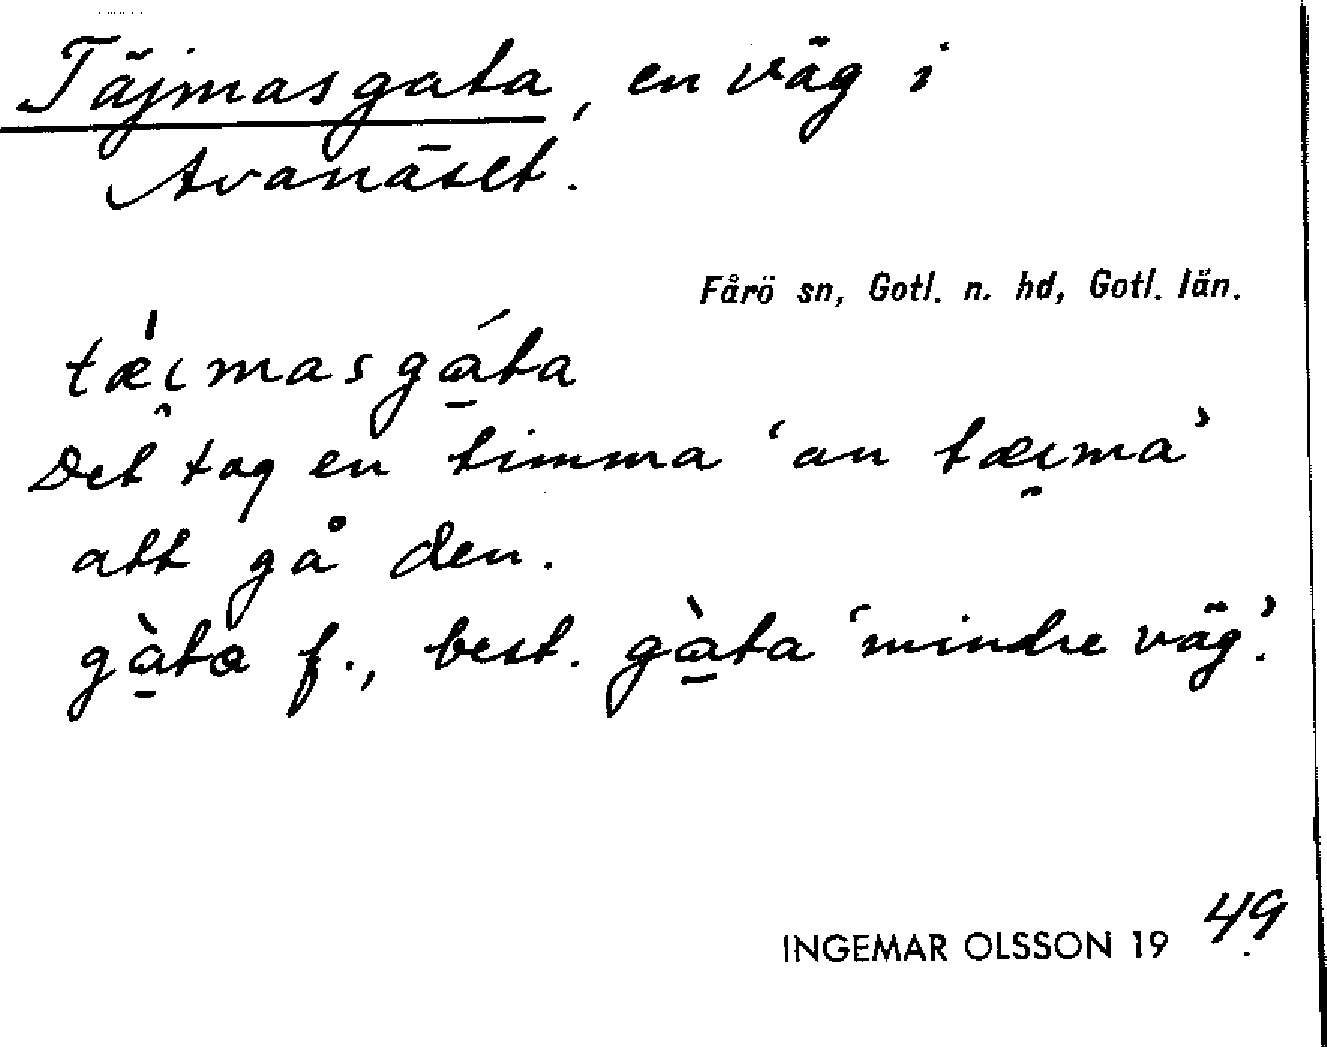 Täjmasgata, en väg i
Avanäset.
Fårö sn, Gotl. n. hd, Gotl. län.
tǽi̯masgá̱ta
Det tog en timma ‘an tæi̯ma’
att gå den.
gà̱ta f., best. gà̱ta ‘mindre väg’.
INGEMAR OLSSON 1949.